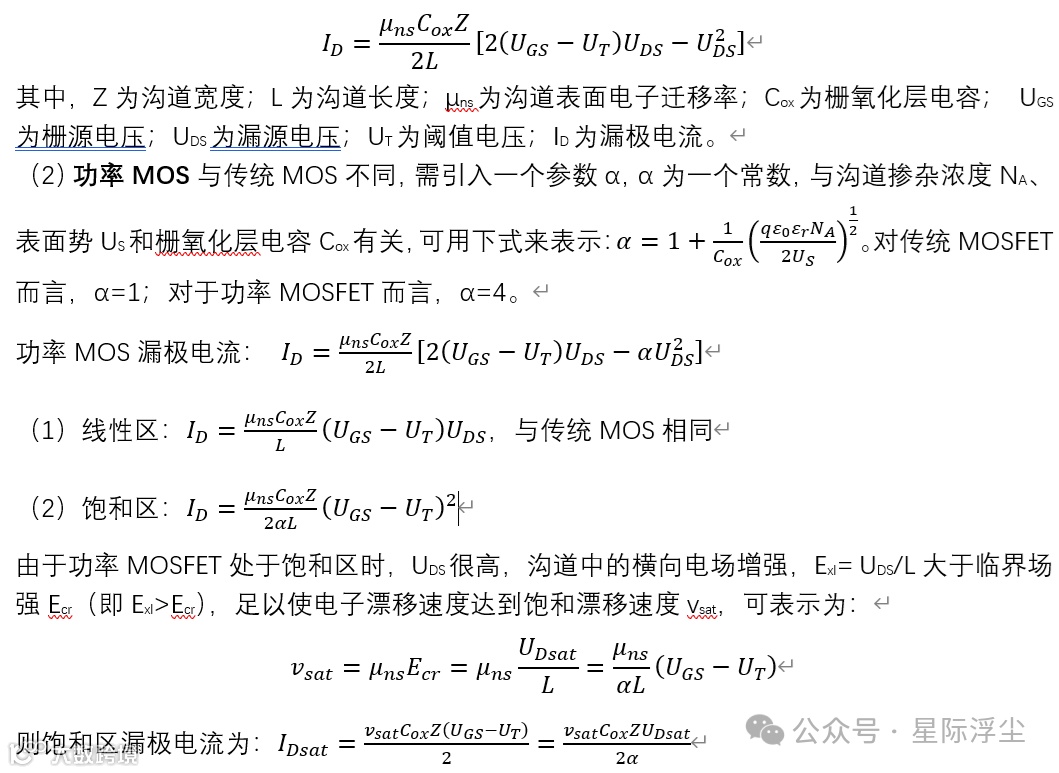 I_D = μ_ns C_ox Z / 2L [2(U_GS − U_T)U_DS − U_DS²]↵
其中，Z 为沟道宽度；L 为沟道长度；μns 为沟道表面电子迁移率；Cox 为栅氧化层电容； UGS
为栅源电压；UDS 为漏源电压；UT 为阈值电压；ID 为漏极电流。↵
（2）功率 MOS 与传统 MOS 不同，需引入一个参数 α，α 为一个常数，与沟道掺杂浓度 NA、
表面势 US 和栅氧化层电容 Cox 有关，可用下式来表示：α = 1 + 1/C_ox (qε₀ε_r N_A / 2U_S)^(1/2)。对传统 MOSFET
而言，α=1；对于功率 MOSFET 而言，α=4。↵
功率 MOS 漏极电流： I_D = μ_ns C_ox Z / 2L [2(U_GS − U_T)U_DS − αU_DS²]↵
（1）线性区：I_D = μ_ns C_ox Z / L (U_GS − U_T)U_DS，与传统 MOS 相同↵
（2）饱和区：I_D = μ_ns C_ox Z / 2αL (U_GS − U_T)²↵
由于功率 MOSFET 处于饱和区时，UDS 很高，沟道中的横向电场增强，Exl= UDS/L 大于临界场
强 Ecr（即 Exl>Ecr），足以使电子漂移速度达到饱和漂移速度 vsat，可表示为：↵
v_sat = μ_ns E_cr = μ_ns U_Dsat / L = μ_ns / αL (U_GS − U_T)↵
则饱和区漏极电流为：I_Dsat = v_sat C_ox Z(U_GS−U_T) / 2 = v_sat C_ox Z U_Dsat / 2α↵
公众号 · 星际浮尘
大数跨境